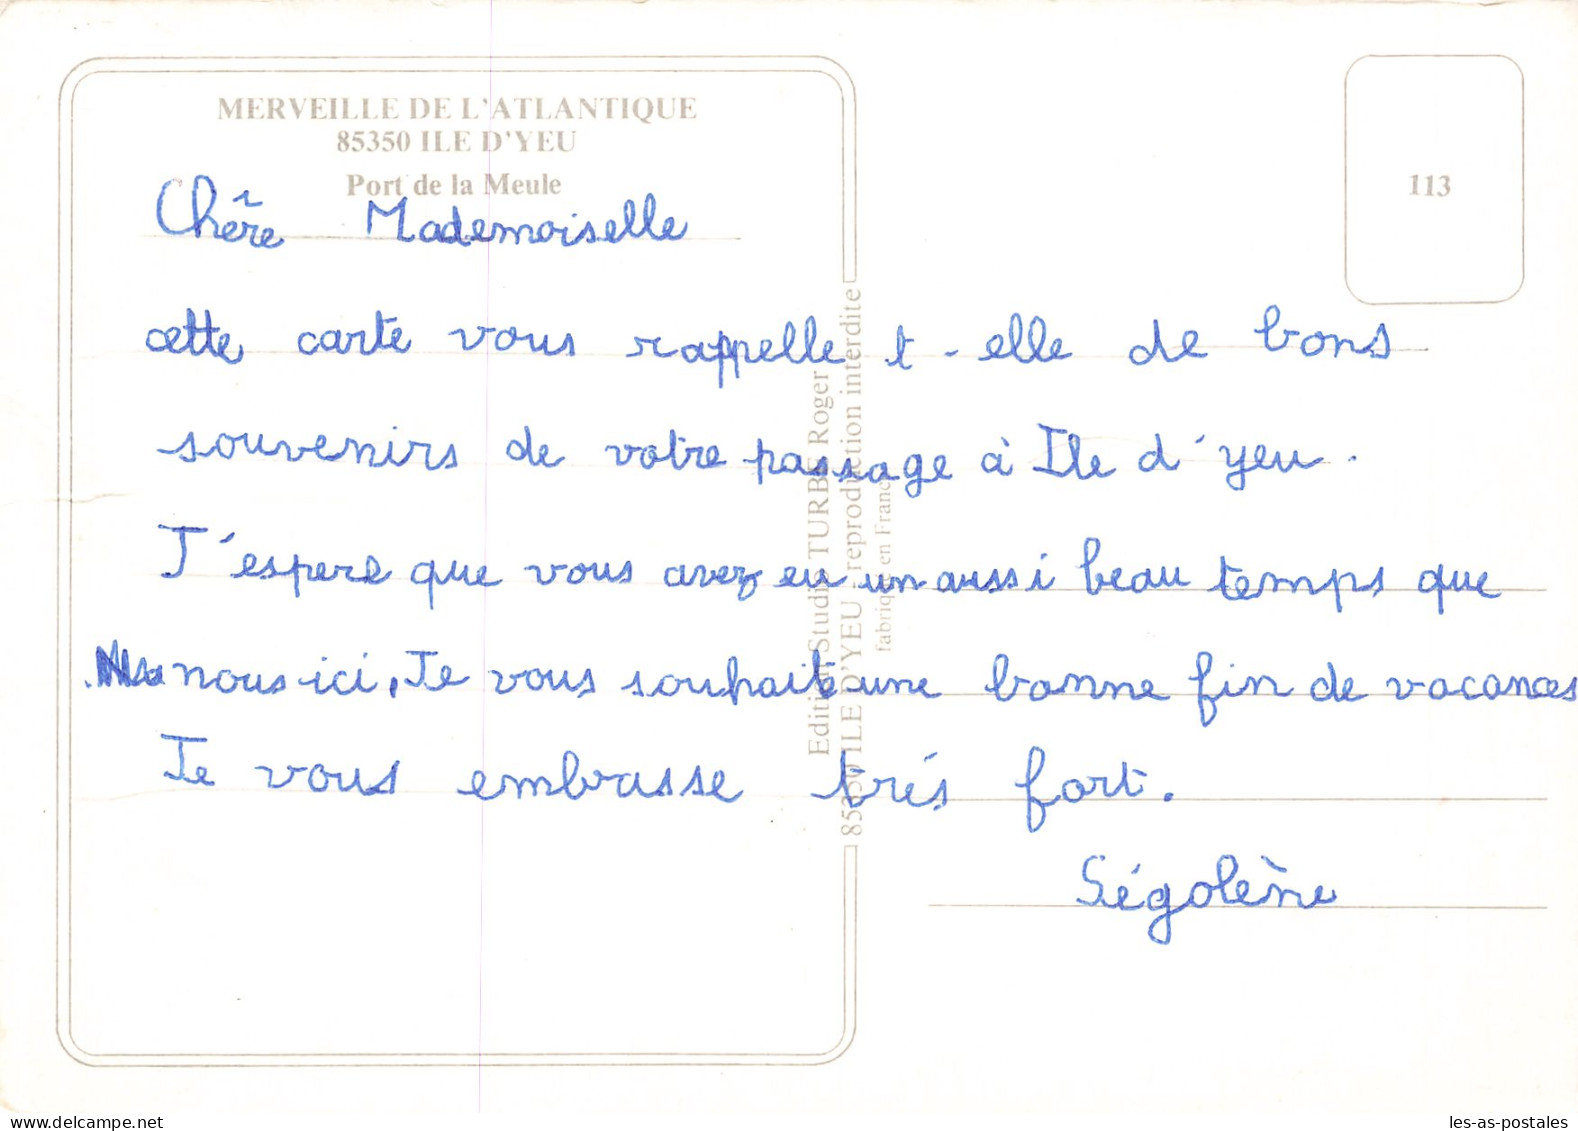 MERVEILLE DE L'ATLANTIQUE
85350 ILE D'YEU
Port de la Meule
113
Chère Mademoiselle
cette carte vous rappelle t-elle de bons
souvenirs de votre passage à Ile d'yeu.
J'espere que vous avez eu un aussi beau temps que
nous ici, Je vous souhaite une bonne fin de vacances
Je vous embrasse trés fort.
Ségolène
Edition Studio TURBE Roger
85350 ILE D'YEU - reproduction interdite
fabriqué en France
www.delcampe.net
les-as-postales